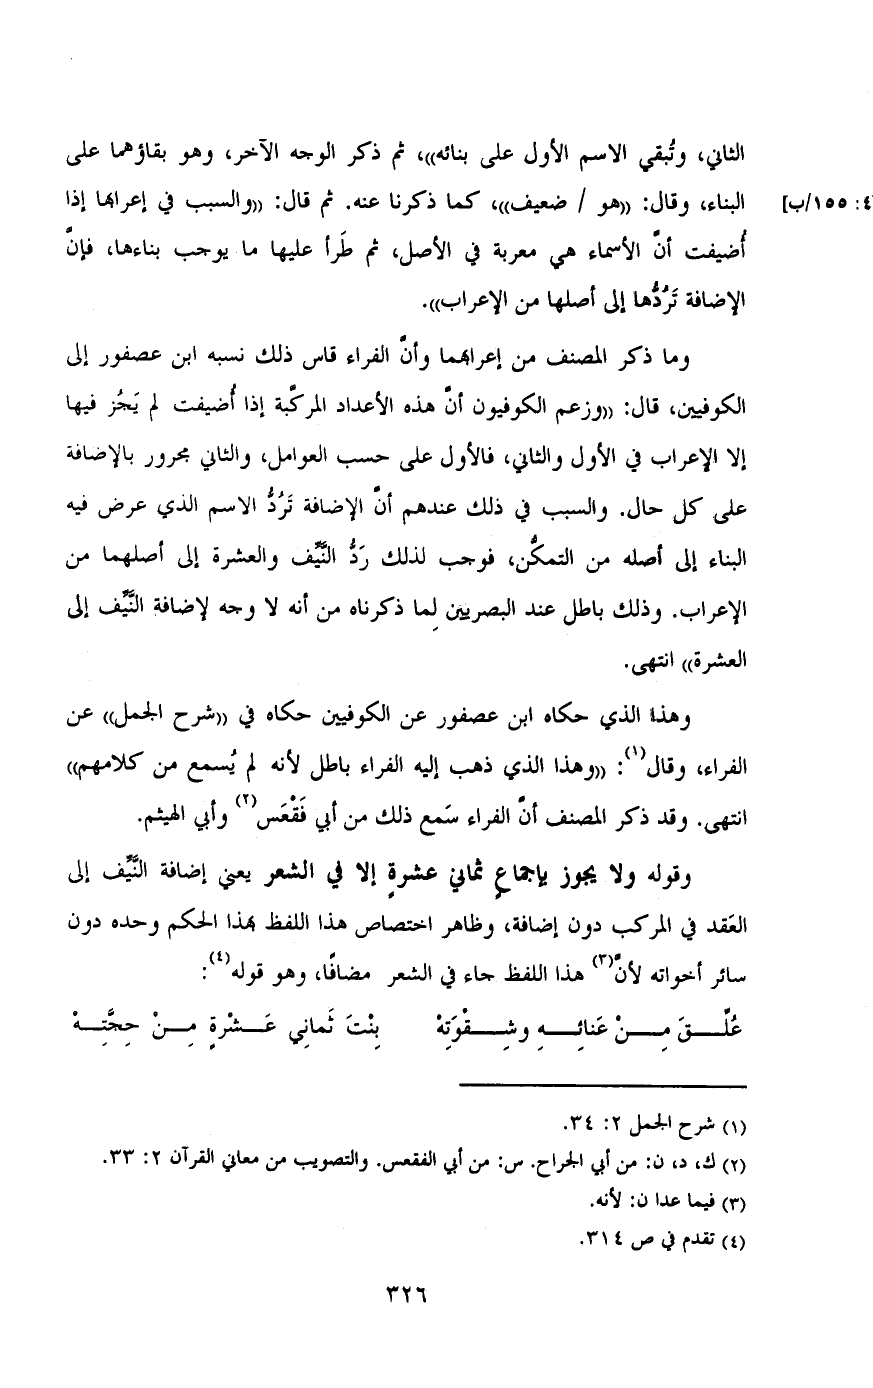 الثاني، وتُبقي الاسم الأول على بنائه))، ثم ذكر الوجه الآخر، وهو بقاؤهما على
٤: ١٥٥/ب] البناء، وقال: ((هو / ضعيف))، كما ذكرنا عنه. ثم قال: ((والسبب في إعرابها إذا
أُضيفت أنَّ الأسماء هي معربة في الأصل، ثم طَرأ عليها ما يوجب بناءها، فإنَّ
الإضافة تَرُدُّها إلى أصلها من الإعراب)).
وما ذكر المصنف من إعرابهما وأنَّ الفراء قاس ذلك نسبه ابن عصفور إلى
الكوفيين، قال: ((وزعم الكوفيون أنَّ هذه الأعداد المركَّبة إذا أُضيفت لم يَجُز فيها
إلا الإعراب في الأول والثاني، فالأول على حسب العوامل، والثاني مجرور بالإضافة
على كل حال. والسبب في ذلك عندهم أنَّ الإضافة تَرُدُّ الاسم الذي عرض فيه
البناء إلى أصله من التمكُّن، فوجب لذلك رَدُّ النَّيِّف والعشرة إلى أصلهما من
الإعراب. وذلك باطل عند البصريين لِما ذكرناه من أنه لا وجه لإضافة النَّيِّف إلى
العشرة)) انتهى.
وهذا الذي حكاه ابن عصفور عن الكوفيين حكاه في ((شرح الجمل)) عن
الفراء، وقال(١): ((وهذا الذي ذهب إليه الفراء باطل لأنه لم يُسمع من كلامهم))
انتهى. وقد ذكر المصنف أنَّ الفراء سَمع ذلك من أبي فَقْعَس(٢) وأبي الهيثم.
وقوله ولا يجوز بإجماعٍ ثماني عشرةٍ إلا في الشعر يعني إضافة النَّيِّف إلى
العَقد في المركب دون إضافة، وظاهر اختصاص هذا اللفظ بهذا الحكم وحده دون
سائر أخواته لأنَّ(٣) هذا اللفظ جاء في الشعر مضافًا، وهو قوله(٤):
عُلِّـــقَ مِـــنْ عَنائِـــهِ وشِـــقْوَتِهْ بِنْتَ ثَمانِي عَـــشْرةٍ مِـــنْ حِجَّتِـــهْ
(١) شرح الجمل ٢: ٣٤.
(٢) ك، د، ن: من أبي الجراح. س: من أبي الفقعس. والتصويب من معاني القرآن ٢: ٣٣.
(٣) فيما عدا ن: لأنه.
(٤) تقدم في ص ٣١٤.
٣٢٦